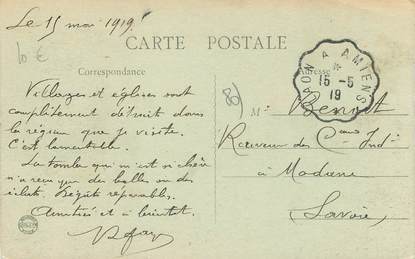 Le 15 mai 1919
10 €
CARTE POSTALE
Correspondance
Adresse
LAON A AMIENS
15-5
19
80
Villages et églises sont
complètement détruit dans
la région que je visite.
C'est lamentable.
La tombe qui m'est si chère
n'a reçu que des balles ou des
éclats. Dégâts réparables.
Amitiés et à bientôt.
M. Benoit
Receveur des Cions Indtes
à Modane
Savoie